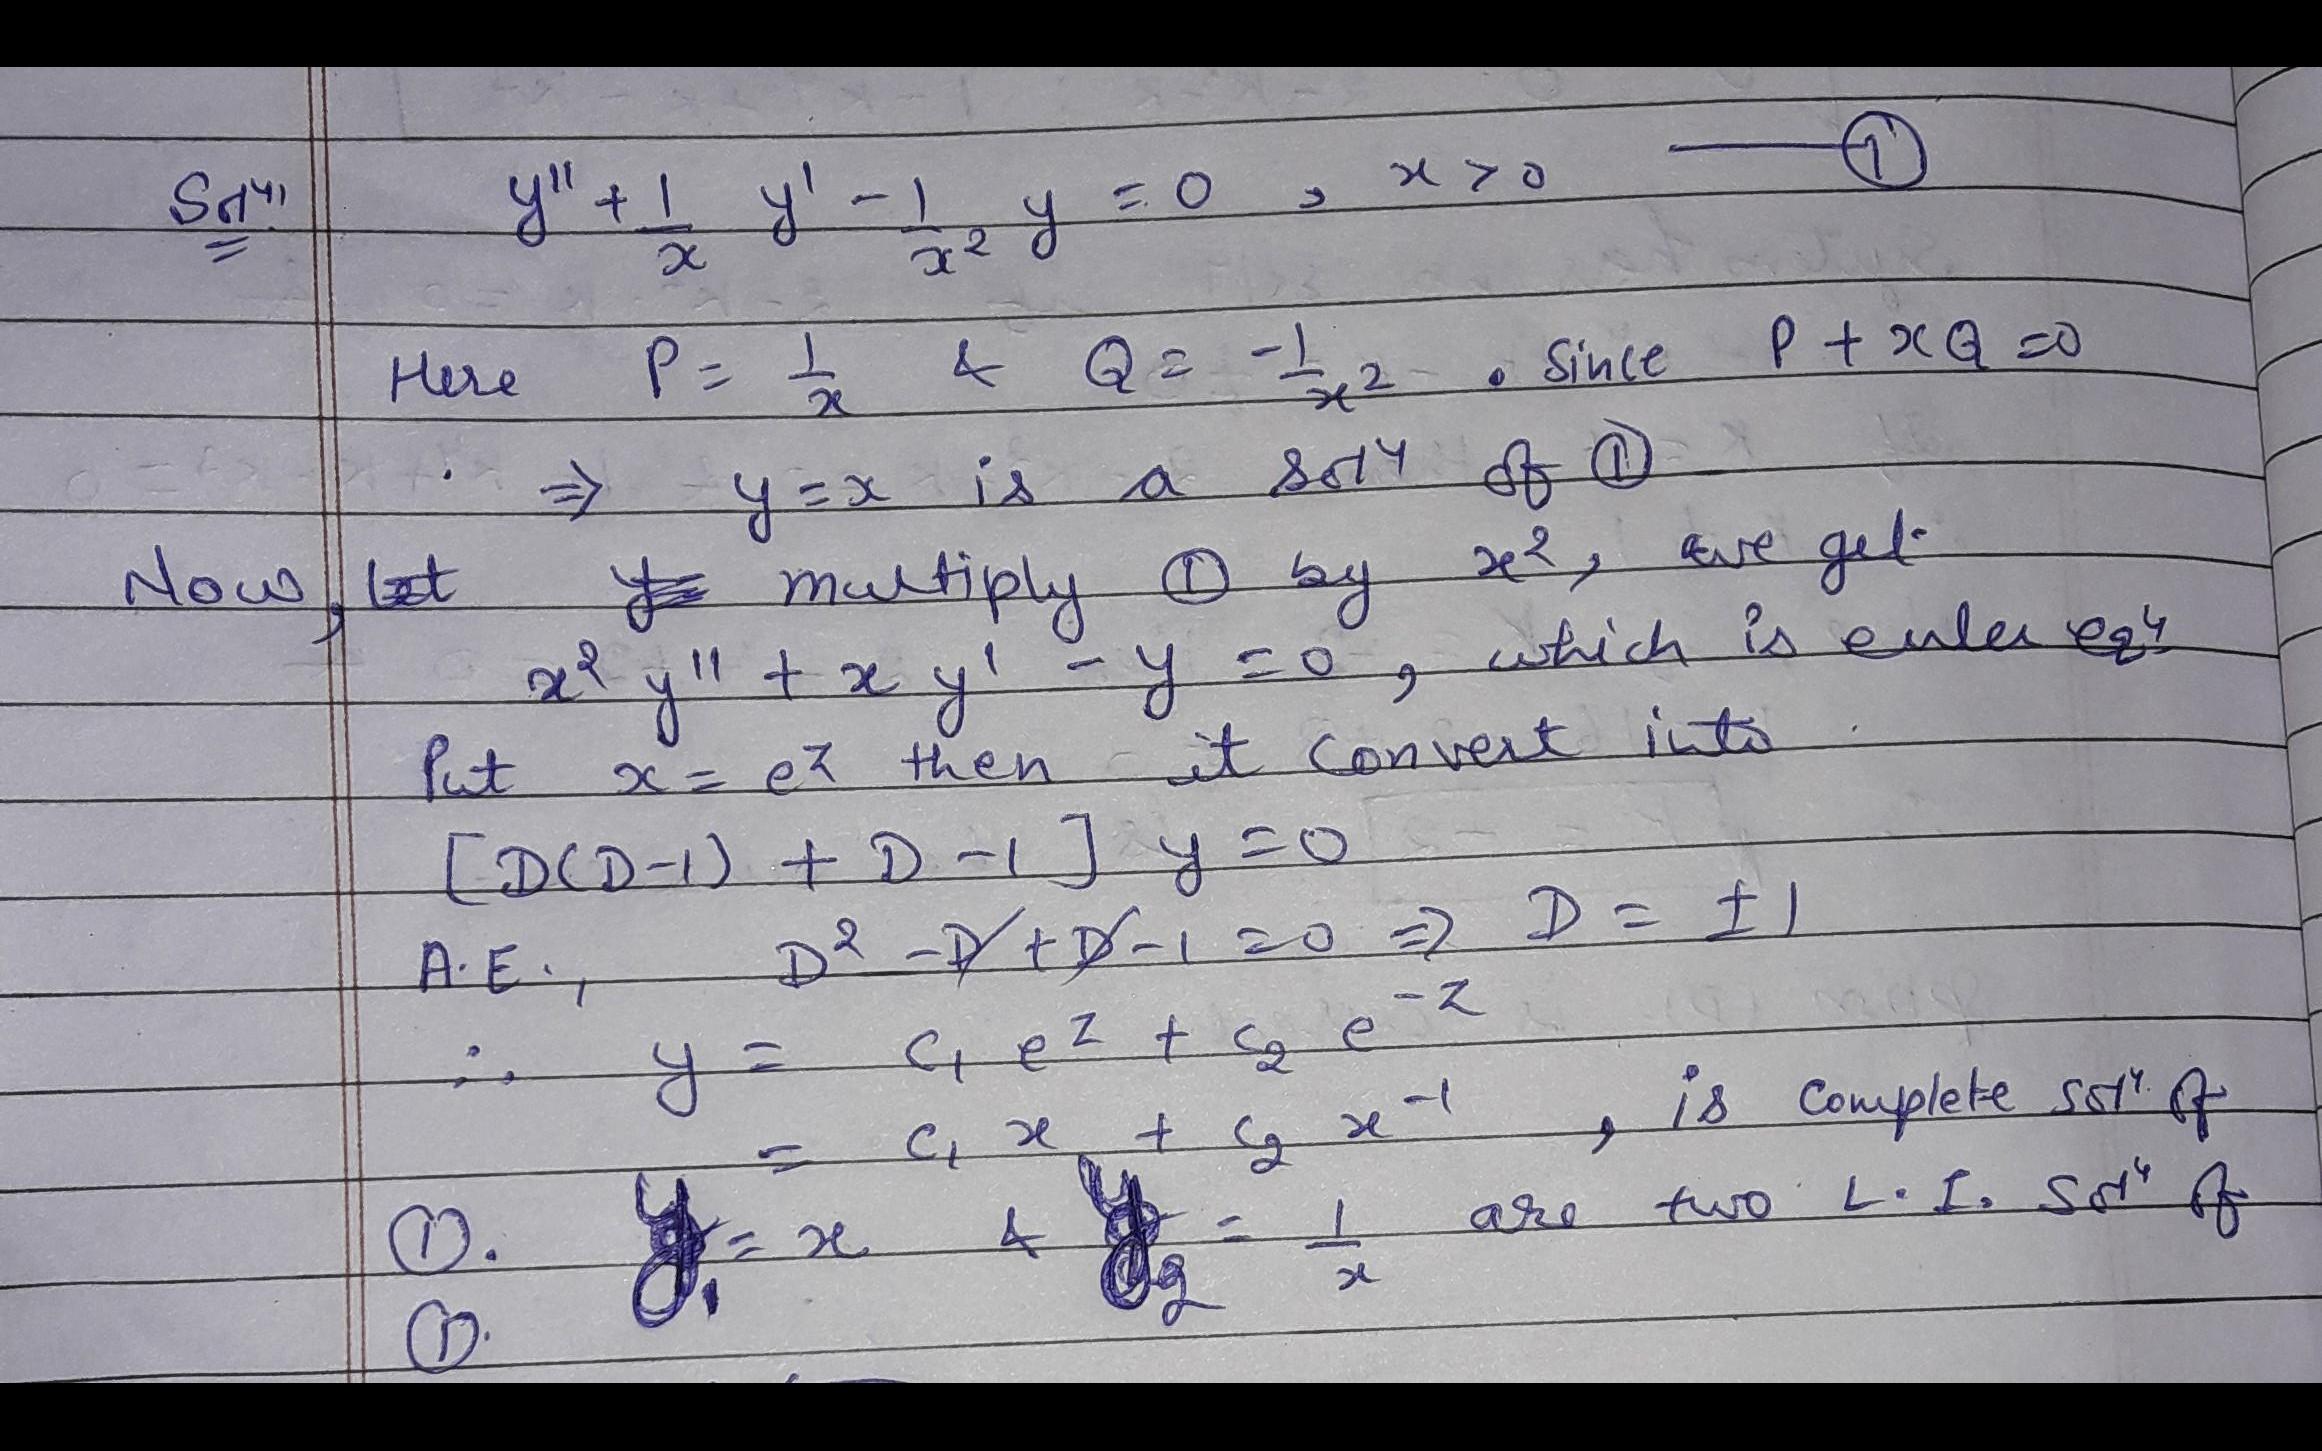 Solⁿ. y'' + 1/x y' - 1/x² y = 0 , x > 0 —— ①
Here P = 1/x & Q = -1/x² . Since P + xQ = 0
⇒ y = x is a solⁿ of ①
Now, let y= multiply ① by x², we get
x² y'' + x y' - y = 0, which is euler eqⁿ
Put x = e^z then it convert into
[D(D-1) + D - 1] y = 0
A.E., D² - D + D - 1 = 0 ⇒ D = ±1
∴ y = c₁ e^z + c₂ e^-z
= c₁ x + c₂ x⁻¹ , is complete solⁿ. of
①. y₁ = x & y₂ = 1/x are two L.I. solⁿ of
①.